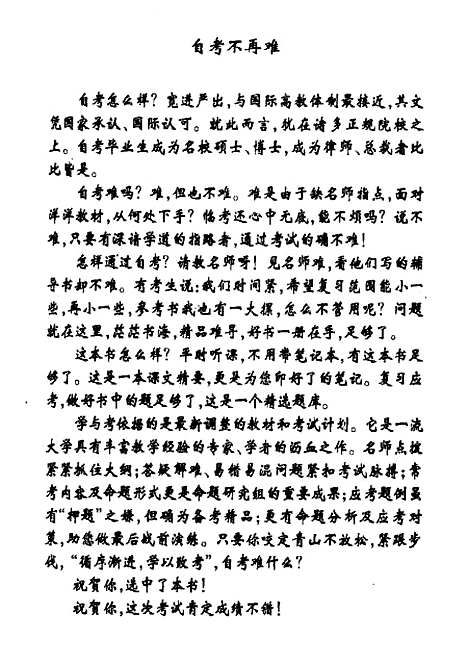 自考不再难
自考怎么样？宽进严出，与国际高教体制最接近，其文
凭国家承认、国际认可。就此而言，犹在诸多正规院校之
上。自考毕业生成为名校硕士、博士，成为律师、总裁者比
比皆是。
自考难吗？难，但也不难。难是由于缺名师指点，面对
洋洋教材，从何处下手？临考还心中无底，能不烦吗？说不
难，只要有深谙学道的指路者，通过考试的确不难！
怎样通过自考？请教名师呀！见名师难，看他们写的辅
导书却不难。有考生说：我们时间紧，希望复习范围能小一
些，再小一些，参考书我也有一大摞，怎么不管用呢？问题
就在这里，茫茫书海，精品难寻，好书一册在手，足够了。
这本书怎么样？平时听课，不用带笔记本，有这本书足
够了。这是一本课文精要，更是为您印好了的笔记。复习应
考，做好书中的题足够了，这是一个精选题库。
学与考依据的是最新调整的教材和考试计划。它是一流
大学具有丰富教学经验的专家、学者的沥血之作。名师点拨
紧紧抓住大纲；答疑解难、易错易混问题紧扣考试脉搏；常
考内容及命题形式更是命题研究组的重要成果；应考题例虽
有“押题”之嫌，但确为备考精品；更有命题分析及应考对
策，助您做最后战前演练。只要你咬定青山不放松，紧跟步
伐，“循序渐进，学以致考”，自考难什么？
祝贺你，选中了本书！
祝贺你，这次考试肯定成绩不错！